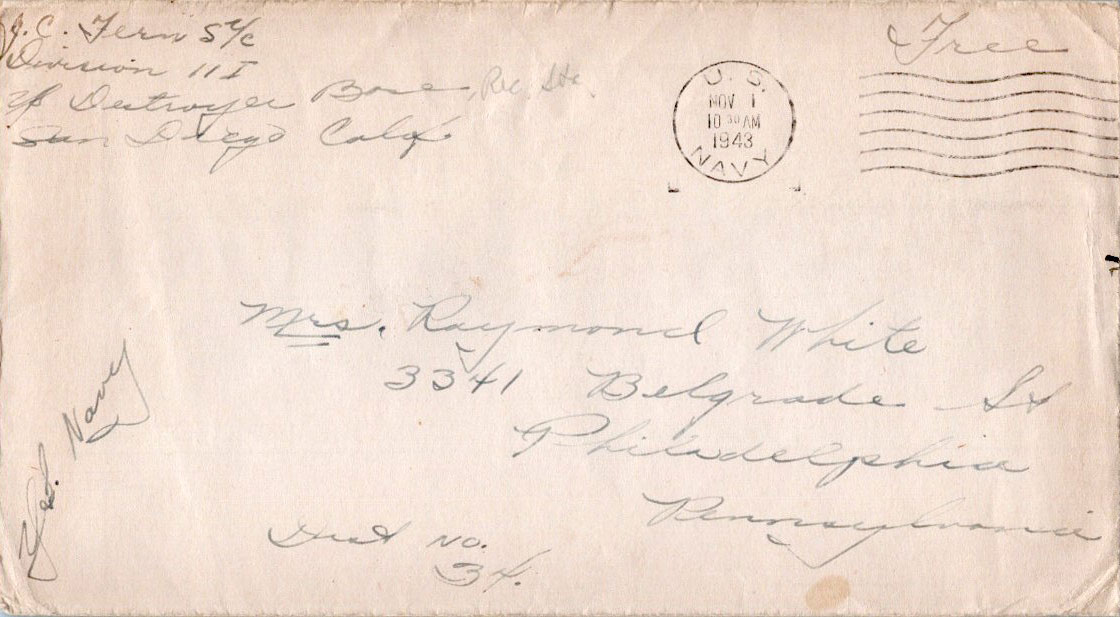 J. C. Fern S 2/c
Division 11 I
% Destroyer Base, Rec. Sta.
San Diego Calif
Free
U. S.
NOV 1
10 30 AM
1943
NAVY
Mrs. Raymond White
3341 Belgrade St
Philadelphia
Pennsylvania
Dist No.
34.
Navy